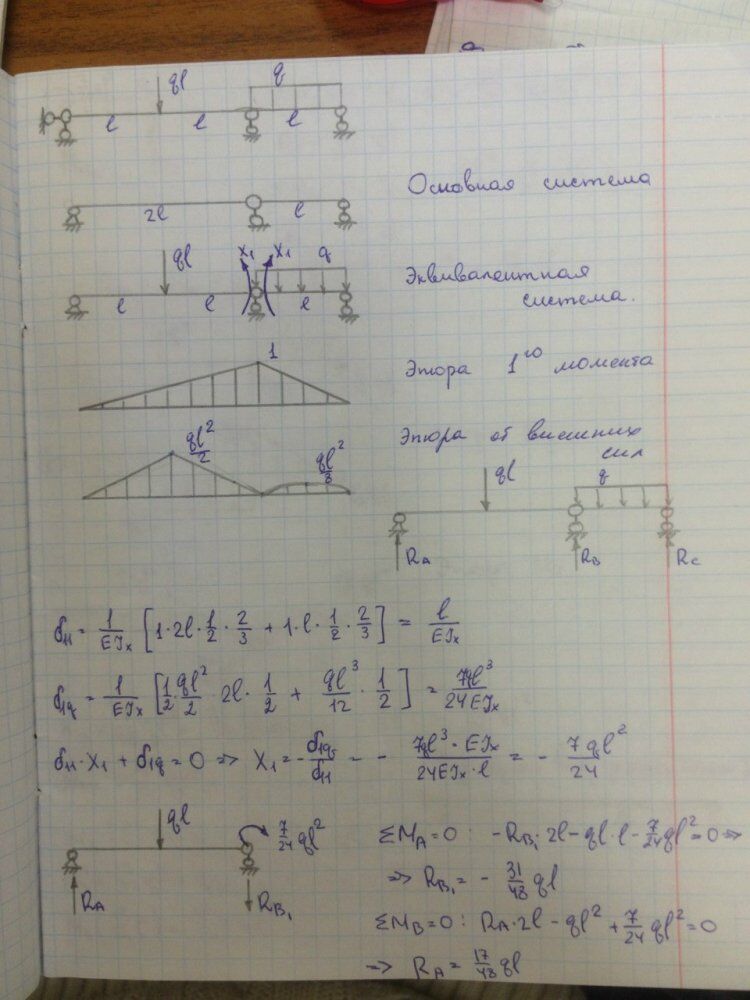 ql q
l l l
Основная система
2l l
ql X₁ X₁ q
Эквивалентная
система.
l l l
1
Эпюра 1го момента
ql²/2 ql²/8
Эпюра от внешних
сил
ql q
R_A R_B R_C
δ₁₁ = 1/EJₓ [1·2l·1/2·2/3 + 1·l·1/2·2/3] = l/EJₓ
δ₁q = 1/EJₓ [1/2·ql²/2·2l·1/2 + ql³/12·1/2] = 7ql³/24EJₓ
δ₁₁·X₁ + δ₁q = 0 => X₁ = -δ₁q/δ₁₁ = - 7ql³·EJₓ/24EJₓ·l = - 7ql²/24
ql 7/24 ql²
R_A R_B₁
ΣM_A=0: -R_B₁·2l - ql·l - 7/24 ql² = 0 =>
=> R_B₁ = - 31/48 ql
ΣM_B=0: R_A·2l - ql² + 7/24 ql² = 0
=> R_A = 17/48 ql